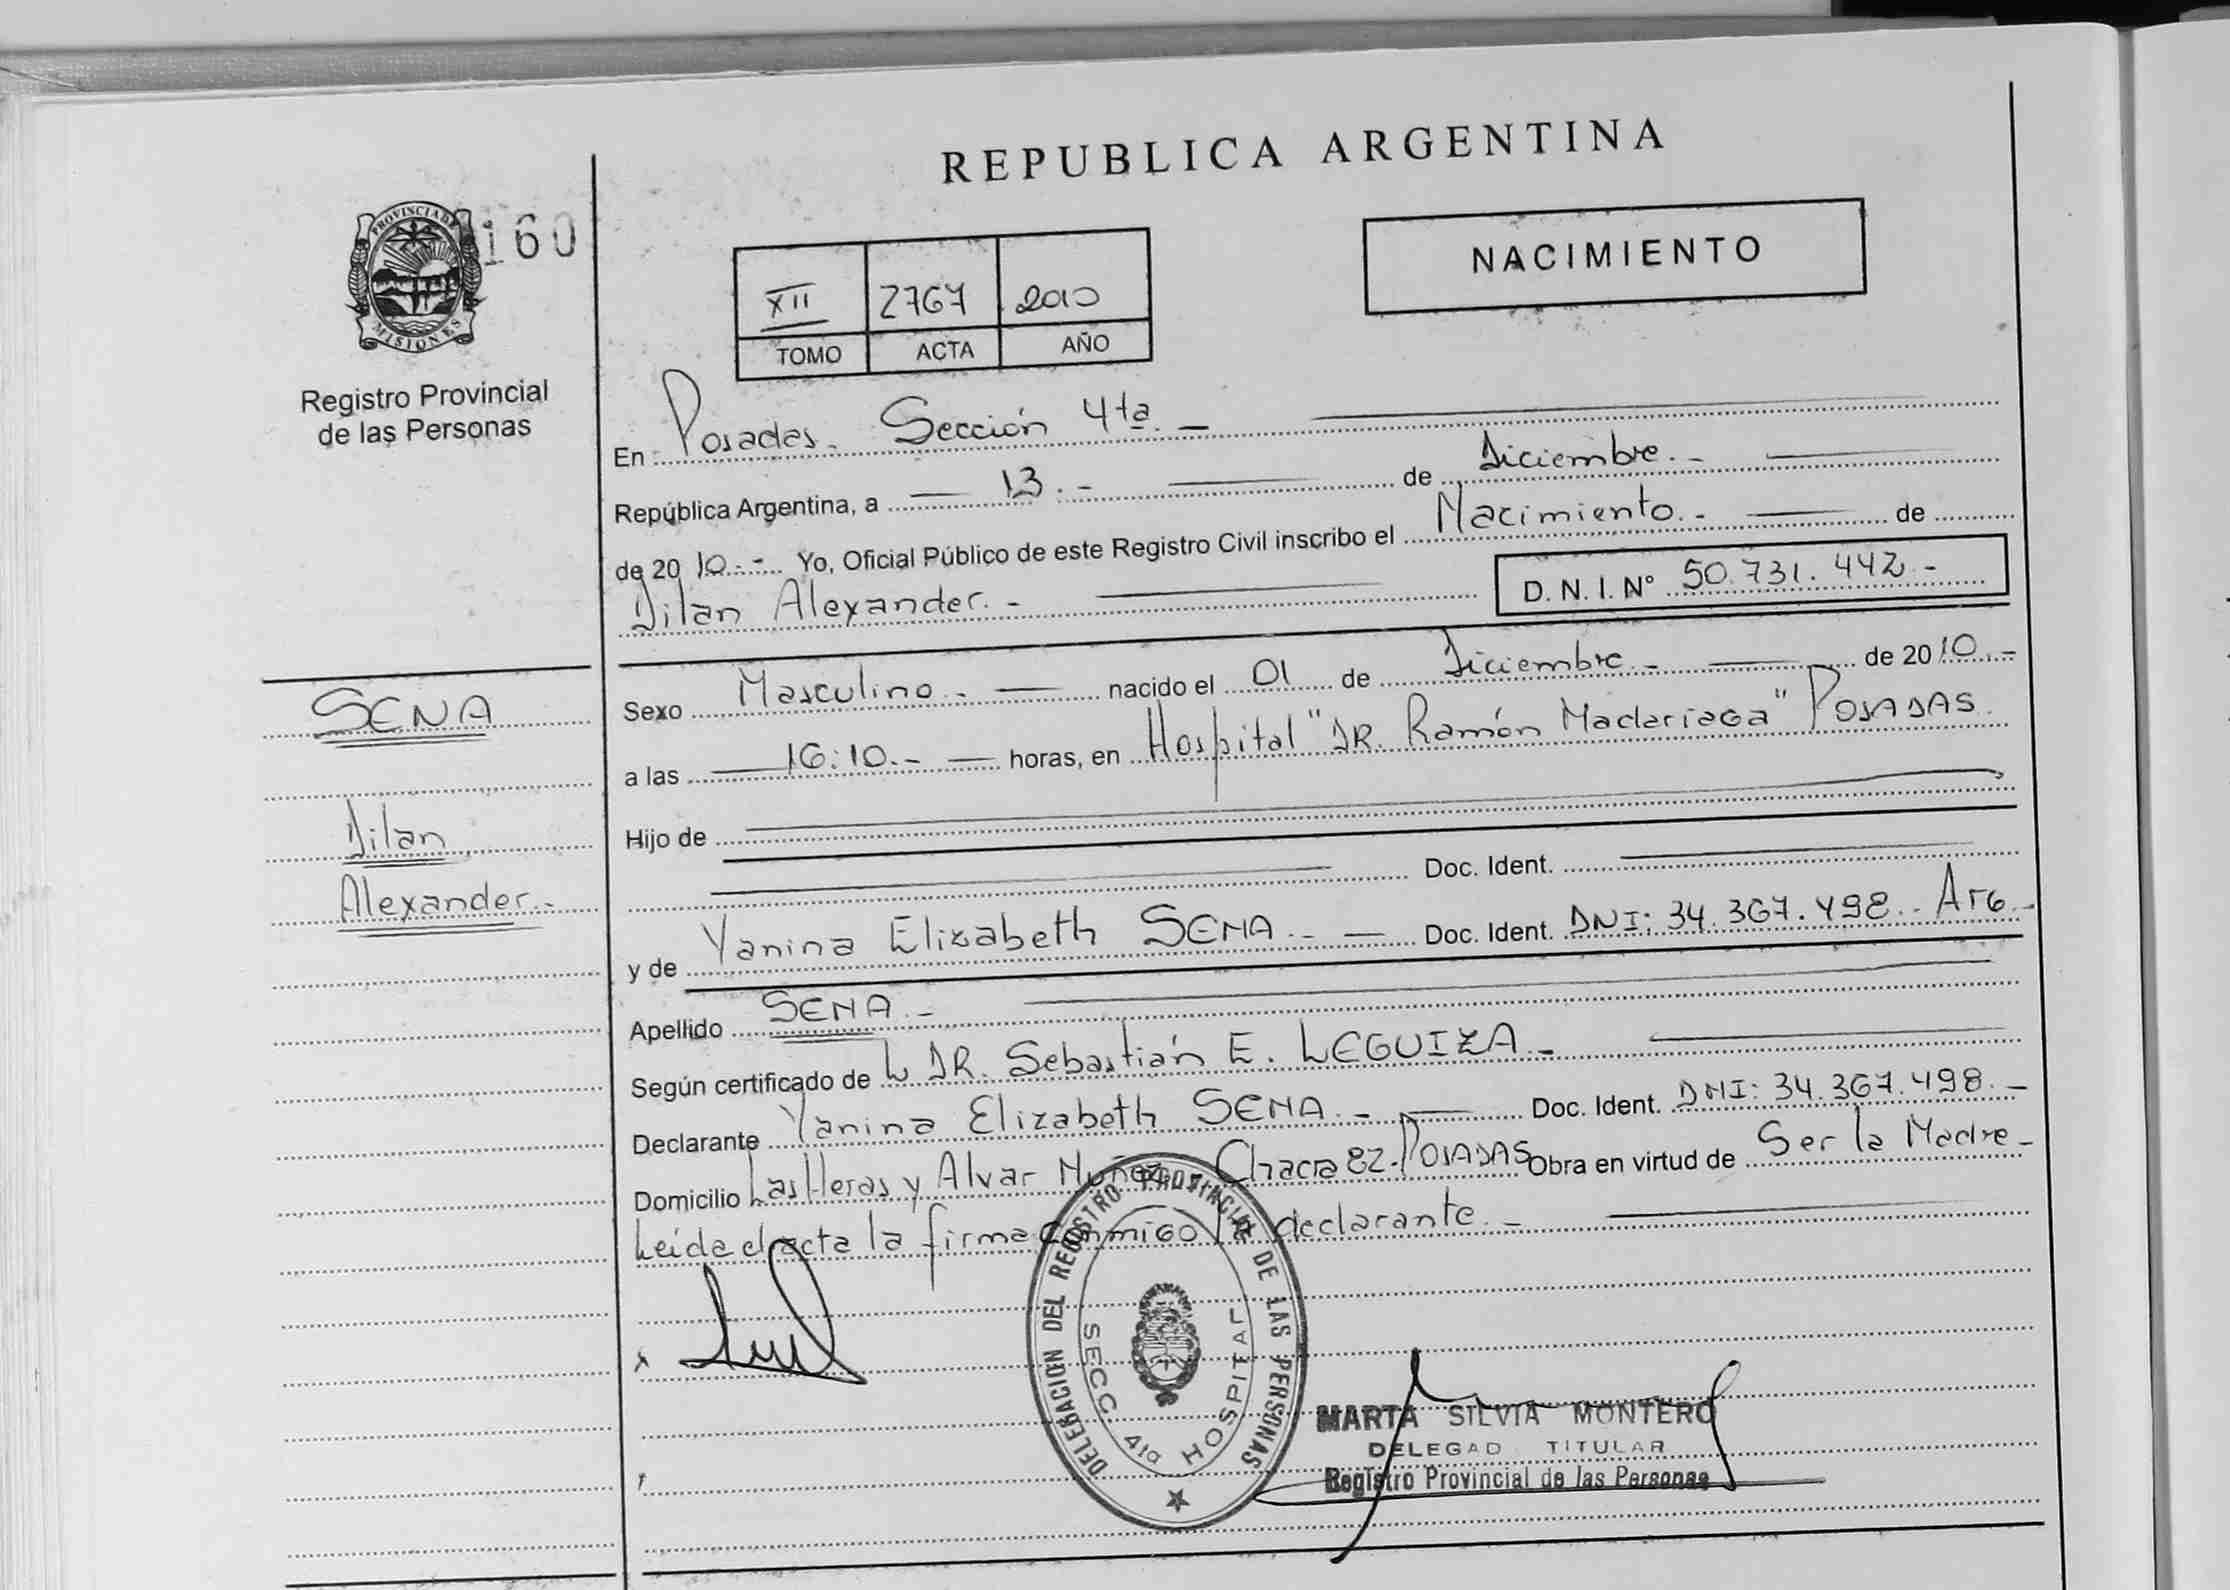 REPUBLICA ARGENTINA
PROVINCIA DE
MISIONES
160
Registro Provincial
de las Personas
NACIMIENTO
XII 2767 2010
TOMO ACTA AÑO
En Posadas. Sección 4ta. -
República Argentina, a 13. - de Diciembre. -
de 2010. - Yo, Oficial Público de este Registro Civil inscribo el Nacimiento. - de
Dilan Alexander. - D. N. I. Nº 50.731.442 -
SENA
Dilan
Alexander. -
Sexo Masculino. - nacido el 01 de Diciembre. - de 2010. -
a las 16:10. - horas, en Hospital "DR. Ramón Madariaga" POSADAS.
Hijo de
Doc. Ident.
y de Yanina Elizabeth SENA. - Doc. Ident. DNI: 34.367.498. - Arg. -
Apellido SENA. -
Según certificado de L DR. Sebastián E. LEGUIZA. -
Declarante Yanina Elizabeth SENA. - Doc. Ident. DNI: 34.367.498. -
Domicilio Las Heras y Alvar Nuñez Chacra 82. POSADAS Obra en virtud de Ser la Madre -
Leída el acta la firma conmigo la declarante. -
x
DELEGACION DEL REGISTRO PROVINCIAL DE LAS PERSONAS
SECC. 4ta HOSPITAL
MARTA SILVIA MONTERO
DELEGAD TITULAR
Registro Provincial de las Personas